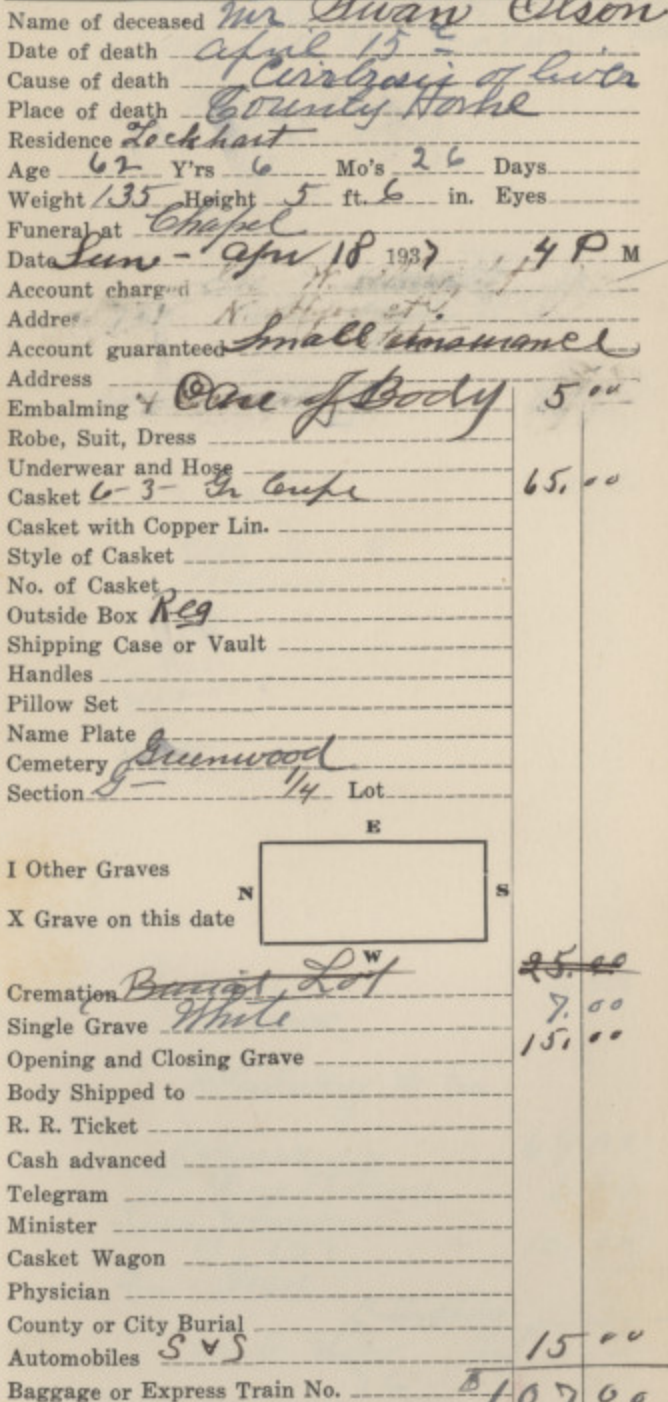 Name of deceased Mr Swan Olson
Date of death april 15
Cause of death Cirrhosis of liver
Place of death County Home
Residence Lockhart
Age 62 Y'rs 6 Mo's 26 Days
Weight 135 Height 5 ft. 6 in. Eyes
Funeral at Chapel
Date Sun - apr 18 1937 4 P M
Account charged
Addre
Account guaranteed Small insurance
Address
Embalming & Care of Body 5 00
Robe, Suit, Dress
Underwear and Hose
Casket 6-3- Gr Crepe 65.00
Casket with Copper Lin.
Style of Casket
No. of Casket
Outside Box Reg
Shipping Case or Vault
Handles
Pillow Set
Name Plate
Cemetery Greenwood
Section G- 1/4 Lot
E
I Other Graves
N S
X Grave on this date
W
Cremation Burial Lot 25.00
Single Grave White 7.00
Opening and Closing Grave 15.00
Body Shipped to
R. R. Ticket
Cash advanced
Telegram
Minister
Casket Wagon
Physician
County or City Burial
Automobiles S & S 15 00
Baggage or Express Train No. $107 00